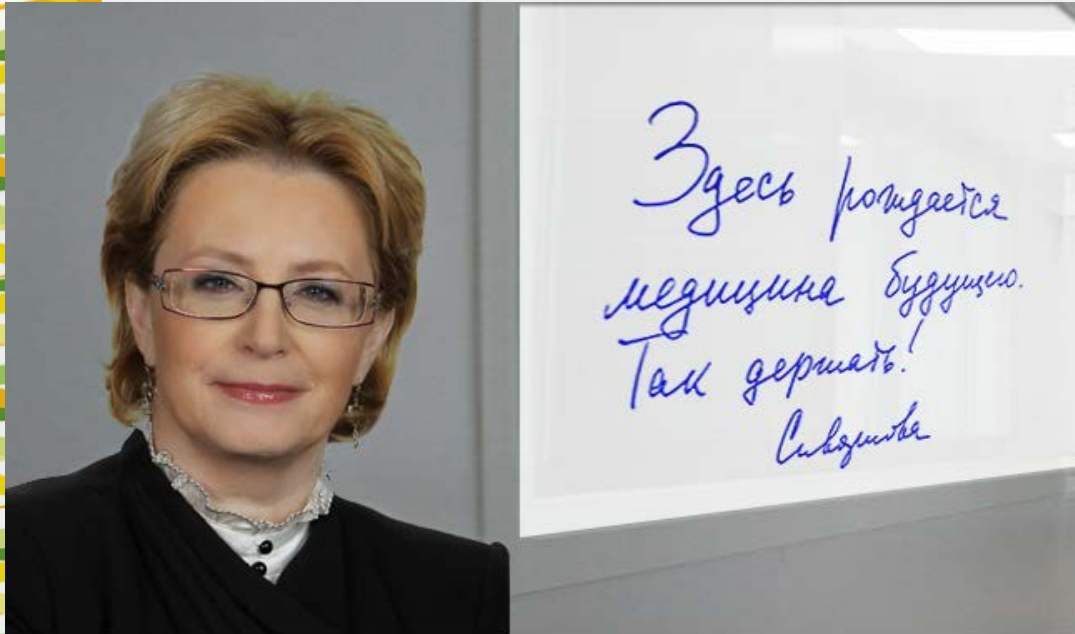 Здесь рождается
медицина будущего.
Так держать!